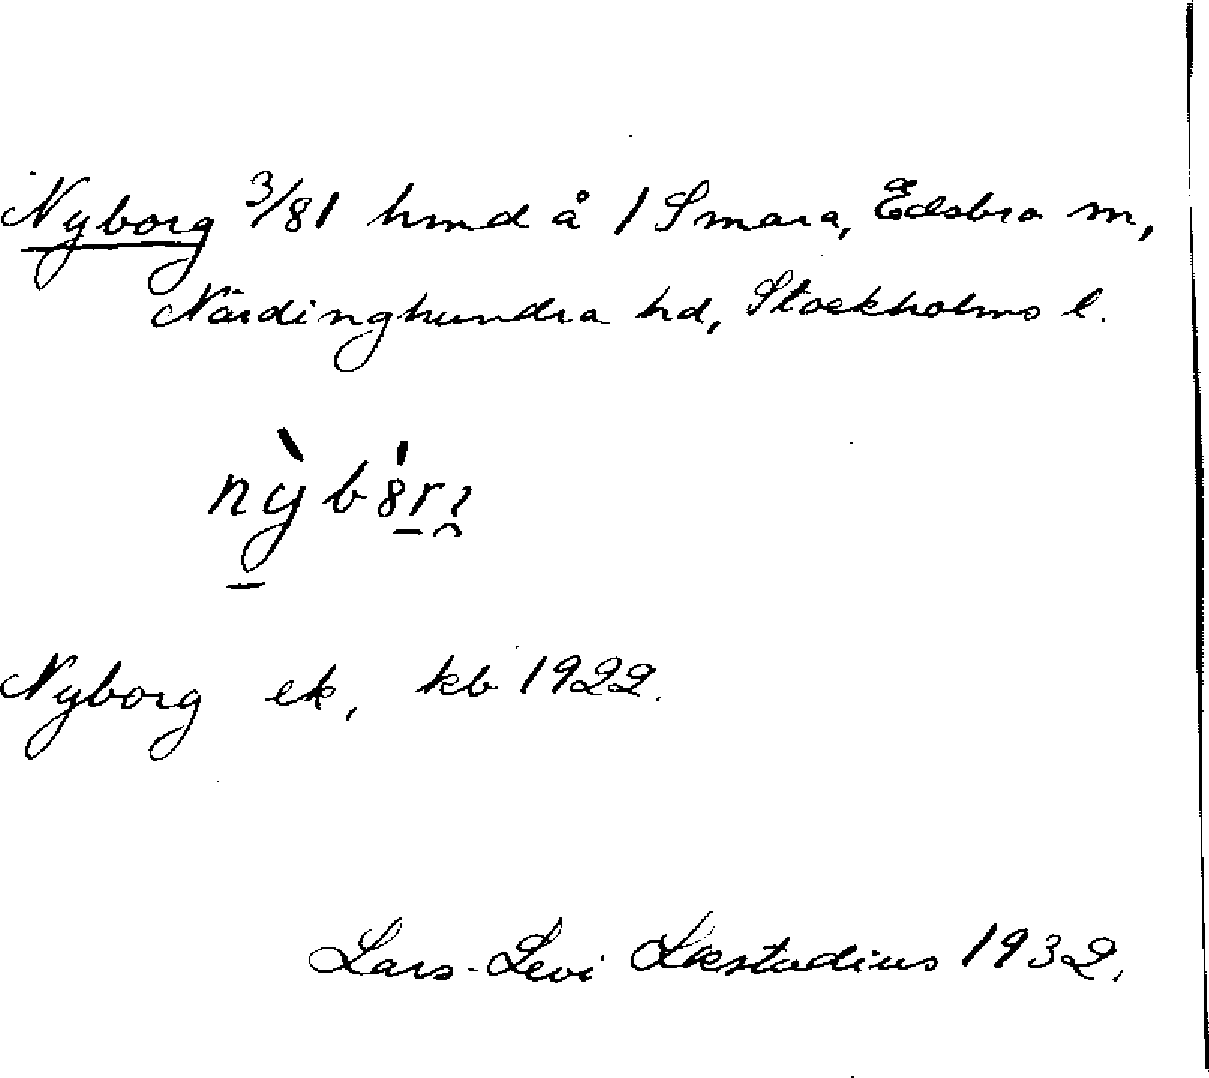 Nyborg 3/81 hmd å 1 Smara, Edsbro sn,
Närdinghundra hd, Stockholms l.
Nyborg ek, kb 1922.
Lars-Levi Læstadius 1932.